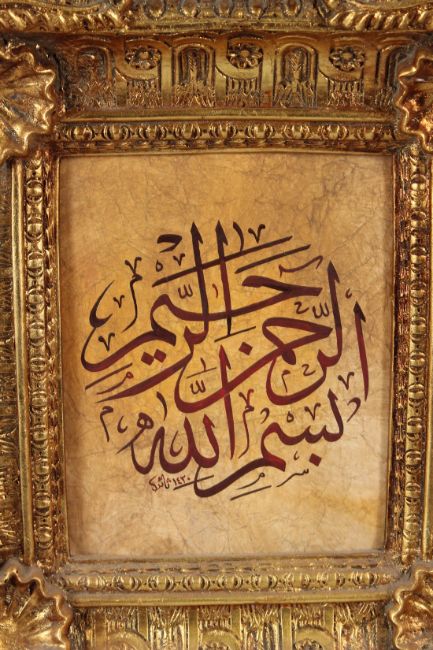 بسم الله
الرحمن الرحيم
١٤٣٠